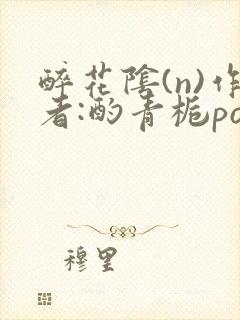 醉花陰(n)作
者:酌青栀po
穆里